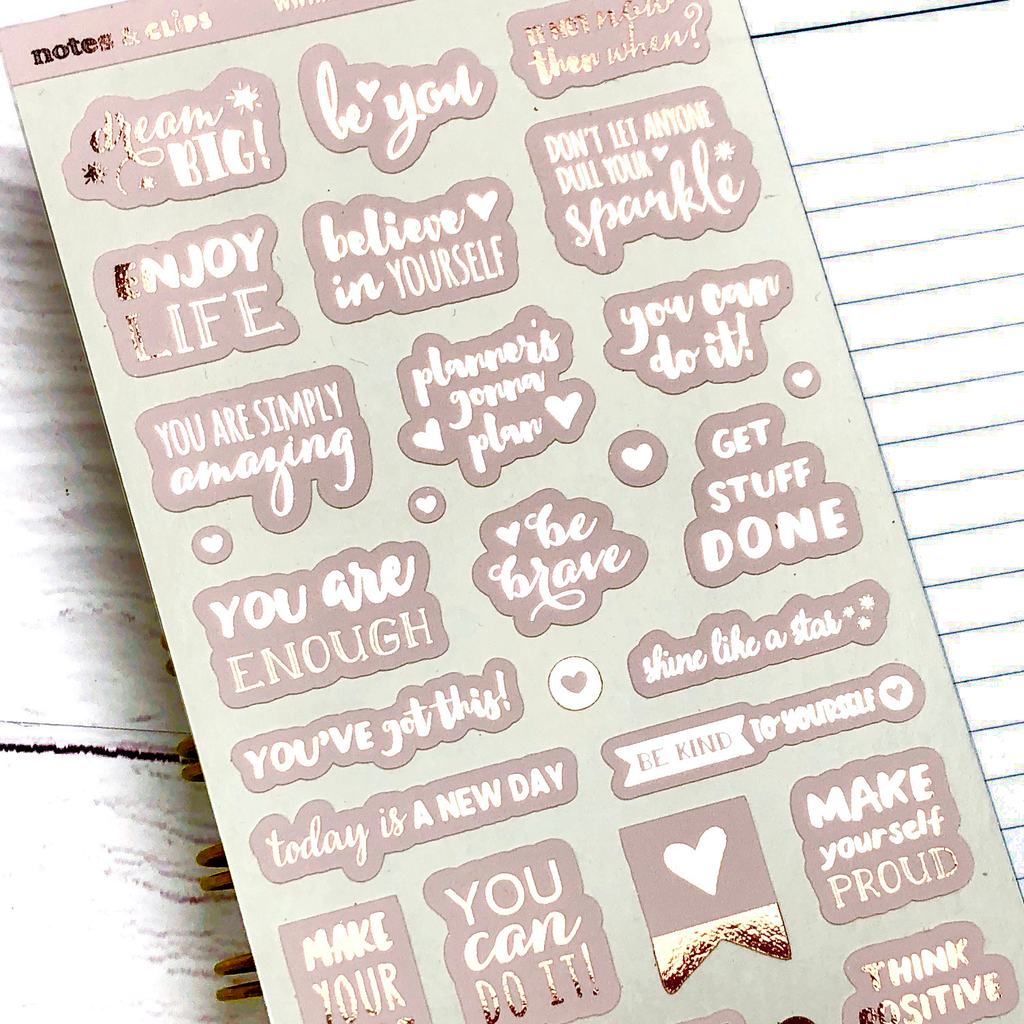 notes & CLiPS
IF NOT now
then when?
be you
dream
BIG!
DON'T LET ANYONE
DULL YOUR
sparkle
believe
in YOURSELF
ENJOY
LIFE
you can
do it!
planner's
gonna
plan
YOU ARE SIMPLY
amazing
GET
STUFF
DONE
be
brave
YOU are
ENOUGH
shine like a star
YOU'VE got this!
BE KIND TO YOURSELF
today is A NEW DAY
MAKE
yourself
PROUD
YOU
can
DO IT!
MAKE
YOUR
THINK
POSITIVE